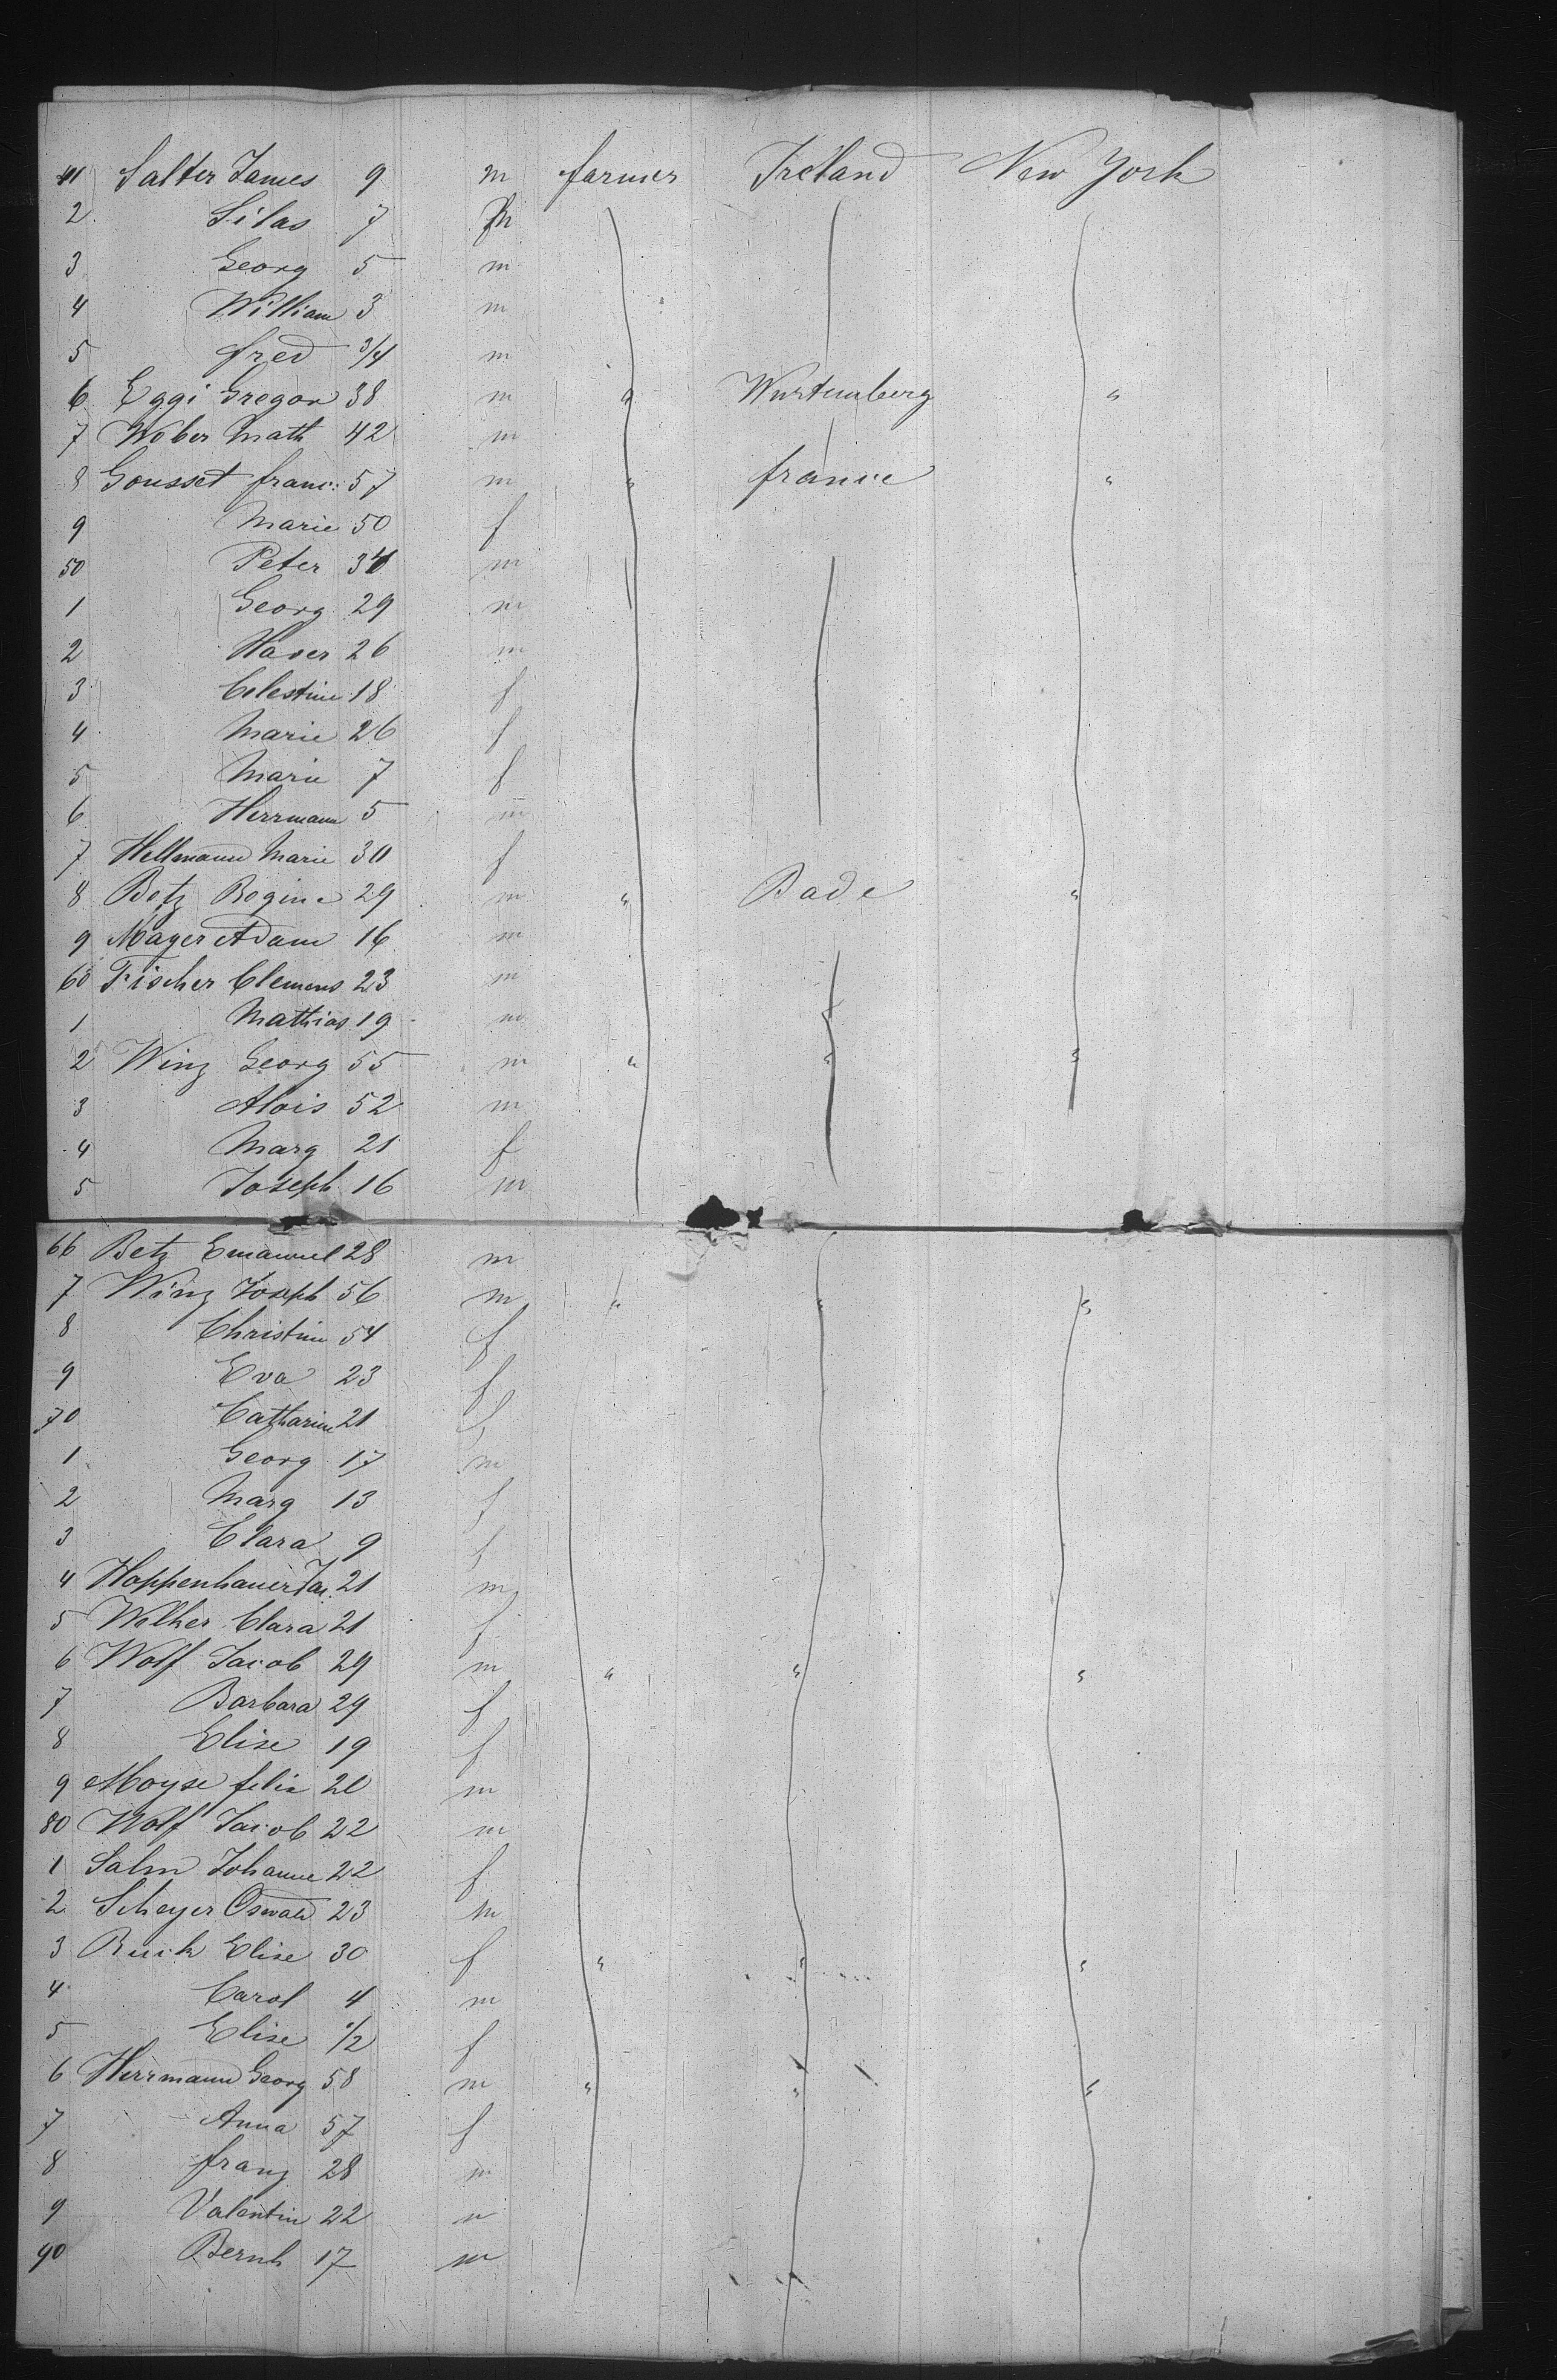 41 Salter James 9 m farmer Ireland New York
2 Silas 7 m
3 Georg 5 m
4 William 3 m
5 fred 3/4 m
6 Eggi Gregor 38 m " Wurtemberg "
7 Weber Math 42 m
8 Gousset franc: 57 m " france "
9 Marie 50 f
50 Peter 34 m
1 Georg 29 m
2 26 m
3 Celestine 18 f
4 Marie 26 f
5 Marie 7 f
6 Herrmann 5 m
7 Hellmann Marie 30 f
8 Betz Regine 29 m " Bade "
9 Mayer Adam 16 m
60 Fischer Clemens 23 m
1 Mathias 19 m "
2 Winz Georg 55 m " " "
3 Alois 52 m
4 Marg 21 f
5 Joseph 16 m
66 Betz Emanuel 28 m
7 Winz Joseph 56 m " " "
8 Christine 54 f
9 Eva 23 f
70 Catharine 21 f
1 Georg 17 m
2 Marg 13 f
3 Clara 9 f
4 Hoppenhauer Jac. 21 m
5 Welker Clara 21 f
6 Wolf Jacob 29 m " " "
7 Barbara 29 f
8 Elise 19 f
9 Moyse felix 20 m
80 Wolf Jacob 22 m
1 Salm Johanne 22 f
2 Scheyer Oswald 23 m
3 Ruck Elise 30 f " " "
4 Carol 4 m
5 Elise 1/2 f
6 Herrmann Georg 58 m " " "
7 Anna 57 f
8 franz 28 m
9 Valentin 22 m
90 Bernh 17 m